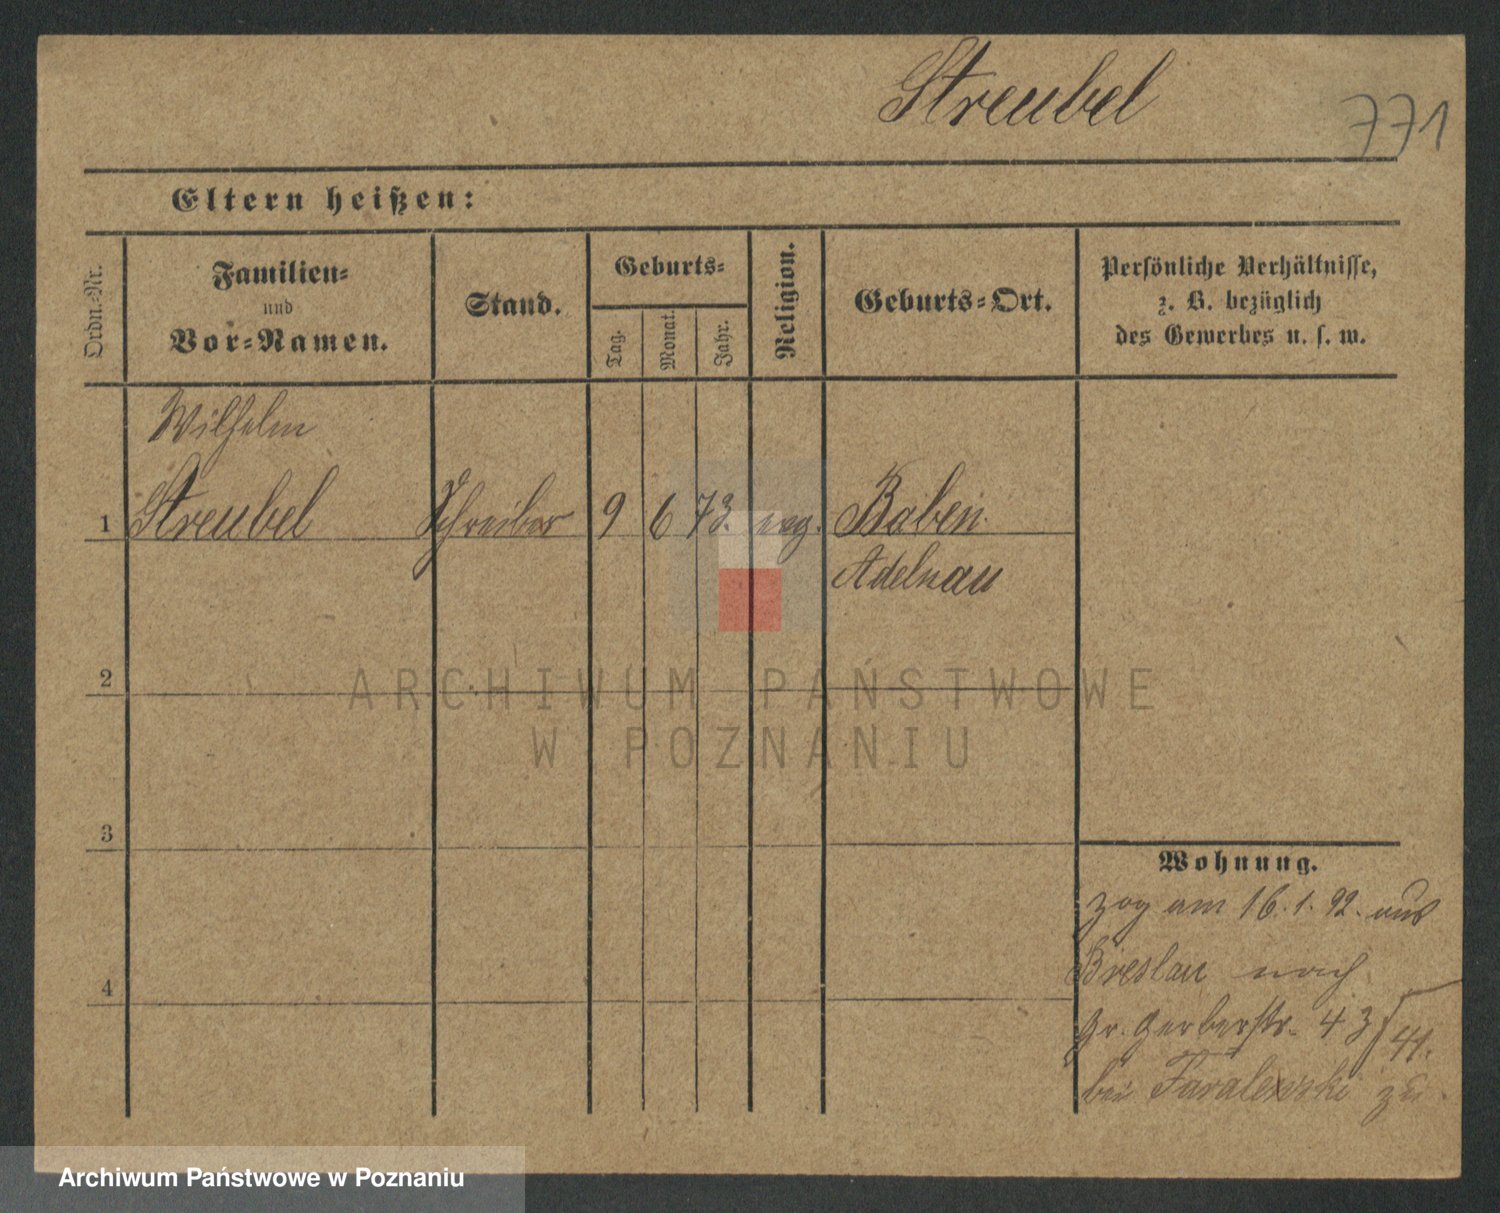 Streubel
771
Eltern heißen:
Ordn.-Nr.
Familien-
und
Vor-Namen.
Stand.
Geburts-
Tag.
Monat.
Jahr.
Religion.
Geburts-Ort.
Persönliche Verhältnisse,
z. B. bezüglich
des Gewerbes u. s. w.
Wilhelm
1 Streubel Schreiber 9 6 73. evg. Baben
Adelnau
2
3
4
Wohnung.
zog am 16. 1. 92. aus
Breslau nach
Gr. Gerberstr. 43 / 41.
bei zu.
ARCHIWUM PAŃSTWOWE
W POZNANIU
Archiwum Państwowe w Poznaniu